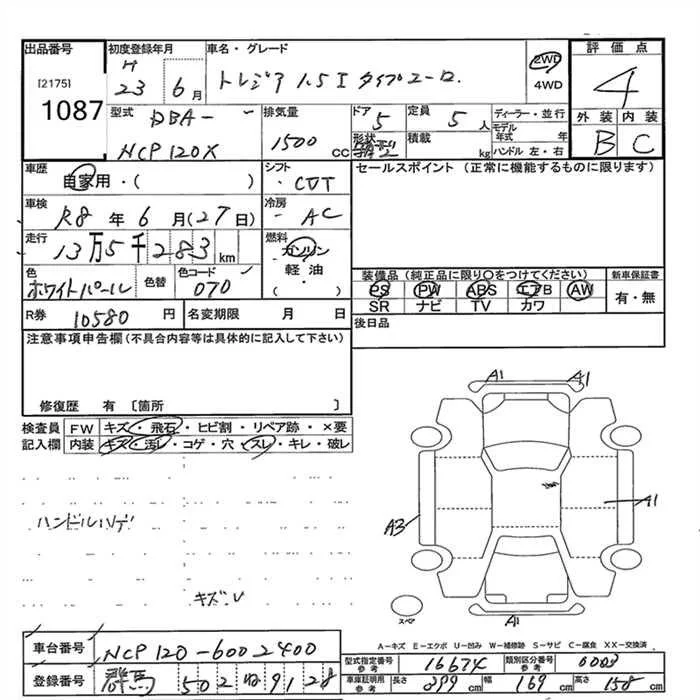 出品番号 初度登録年月 車名・グレード 2WD 評価点
[2175] H 23 6月 トレジア 1.5I タイプユーロ 4WD 4
1087 外装 内装
B C
型式 DBA- 排気量 ドア 5 定員 5人 ディーラー・並行
NCP120X 1500 CC 形状 積載 kg モデル年式 年
ハンドル 左・右
車歴 自家用・( ) シフト セールスポイント (正常に機能するものに限ります)
・CVT
車検 R8年6月(27日) 冷房
・AC
走行 13万5千283km 燃料
ガソリン
色 色替 色コード 軽油
ホワイトパール 070 ・
( )
装備品 (純正品に限り○をつけてください) 新車保証書
PS PW ABS エアB AW 有・無
SR ナビ TV カワ
R券 10580円 名変期限 月 日 後日品
注意事項申告欄 (不具合内容等は具体的に記入して下さい)
修復歴 有 [箇所 ]
検査員 FW キズ・飛石・ヒビ割・リペア跡・×要
記入欄 内装 キズ・汚レ・コゲ・穴・スレ・キレ・破レ
A1 A1
A3 A1
A1
スペア
キズ・V
A-キズ E-エクボ U-凹み W-補修跡 S-サビ C-腐食 XX-交換済
車台番号 NCP120-6002400
型式指定番号 参考 16674 類別区分番号 参考 0003
登録番号 群馬 502 ね 9128
車庫証明用 参考 長さ 399cm 幅 169cm 高さ 158cm